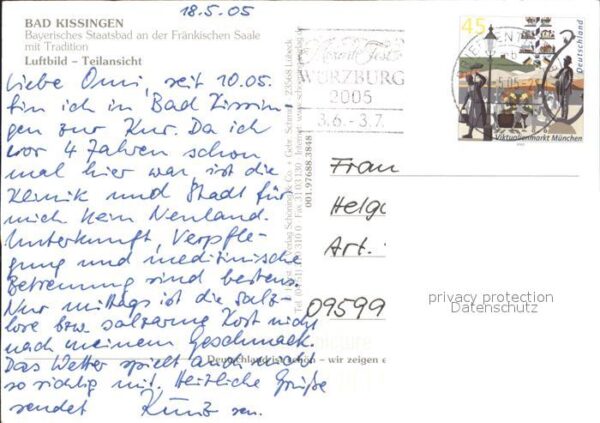 18.5.05
BAD KISSINGEN
Bayerisches Staatsbad an der Fränkischen Saale
mit Tradition
Luftbild – Teilansicht
Liebe Omi, seit 10.05.
bin ich in Bad Kissin-
gen zur Kur. Da ich
vor 4 Jahren schon
mal hier war, ist die
Klinik und Stadt für
mich kein Neuland.
Unterkunft, Verpfle-
gung und medizinische
Betreuung sind bestens.
Nur mittags ist die salz-
lose bzw. salzarme Kost nicht
nach meinem Geschmack.
Das Wetter spielt auch noch
so richtig mit. Herzliche Grüße
sendet Kunz sen.
Mozart Fest
WÜRZBURG
2005
3.6. - 3.7.
45
Deutschland
Viktualienmarkt München
001.97688.3848
Frau
Helga
Art.
09599
privacy protection
Datenschutz
Deutschland ist schön – wir zeigen e